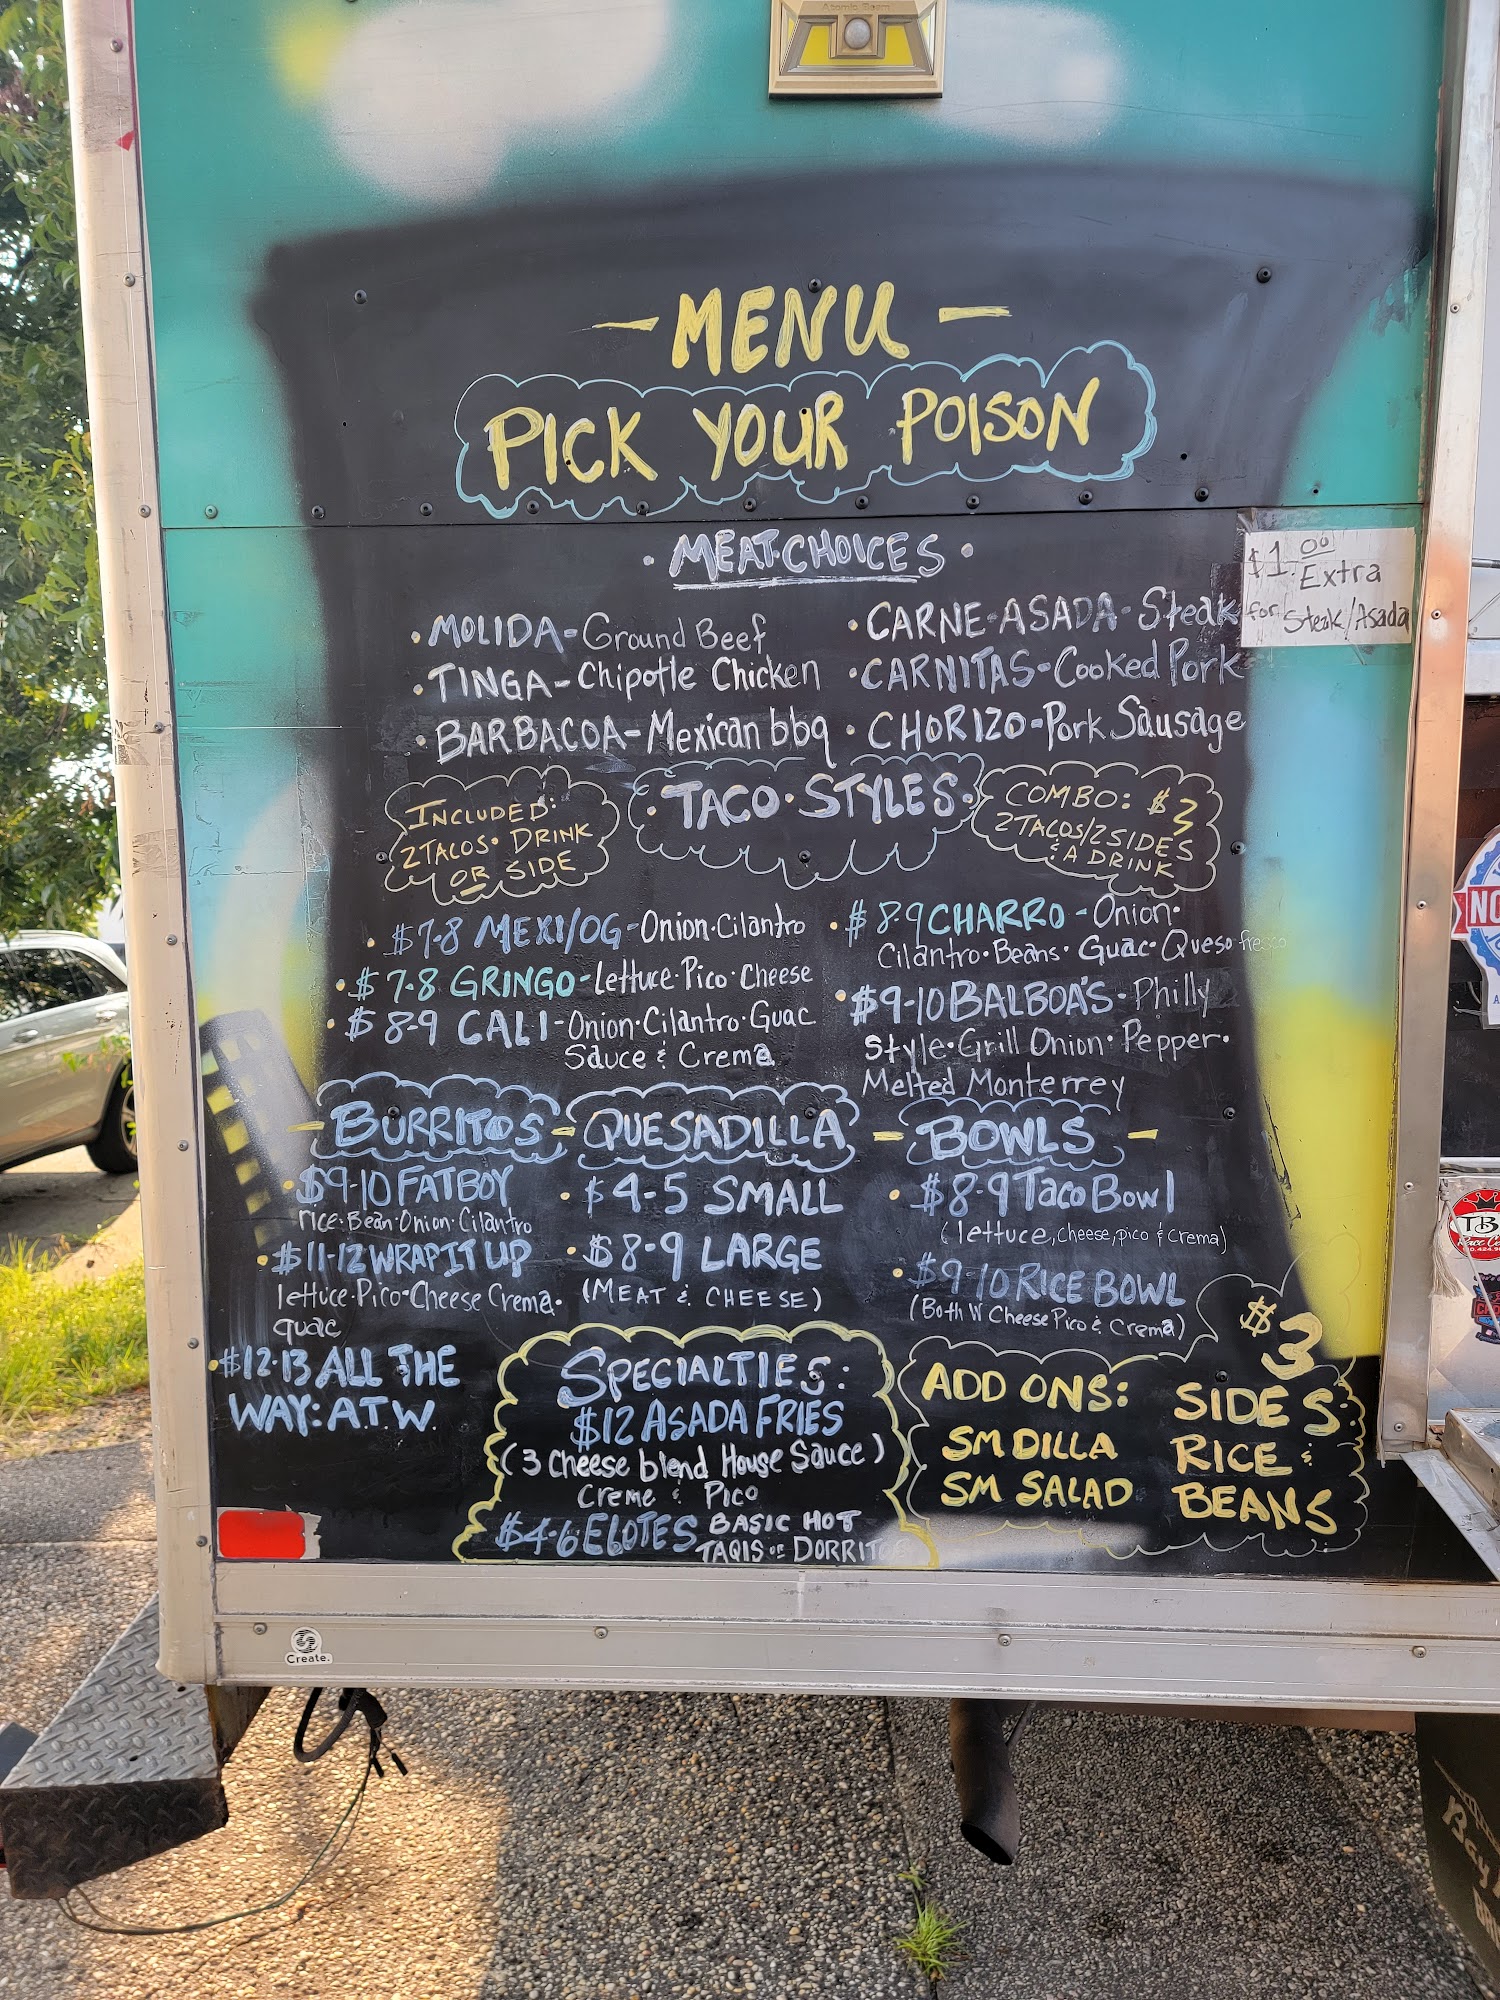 Atomic Beam
- MENU -
PICK YOUR POISON
· MEAT·CHOICES ·
$1.00
Extra
for Steak/Asada
· MOLIDA - Ground Beef
· TINGA - Chipotle Chicken
· BARBACOA - Mexican bbq
· CARNE-ASADA - Steak
· CARNITAS - Cooked Pork
· CHORIZO - Pork Sausage
INCLUDED:
2 TACOS · DRINK
OR SIDE
· TACO · STYLES ·
COMBO: $3
2 TACOS/2 SIDES
& A DRINK
· $7-8 MEXI/OG - Onion · Cilantro
· $7-8 GRINGO - Lettuce · Pico · Cheese
· $8-9 CALI - Onion · Cilantro · Guac
Sauce & Crema
· $8-9 CHARRO - Onion ·
Cilantro · Beans · Guac · Queso fresco
· $9-10 BALBOA'S - Philly
Style · Grill Onion · Pepper ·
Melted Monterrey
- BURRITOS -
· $9-10 FATBOY
rice · Bean · Onion · Cilantro
· $11-12 WRAP IT UP
lettuce · Pico · Cheese Crema ·
guac
· $12-13 ALL THE
WAY: A.T.W.
QUESADILLA
· $4-5 SMALL
· $8-9 LARGE
(MEAT & CHEESE)
- BOWLS -
· $8-9 Taco Bowl
(lettuce, cheese, pico & Crema)
· $9-10 RICE BOWL
(Both W Cheese Pico & Crema)
SPECIALTIES:
$12 ASADA FRIES
(3 Cheese blend House Sauce)
Creme & Pico
$4-6 ELOTES BASIC HOT
TAQIS or DORRITOS
ADD ONS:
SM DILLA
SM SALAD
$3
SIDES:
RICE &
BEANS
Create.
NO
TB